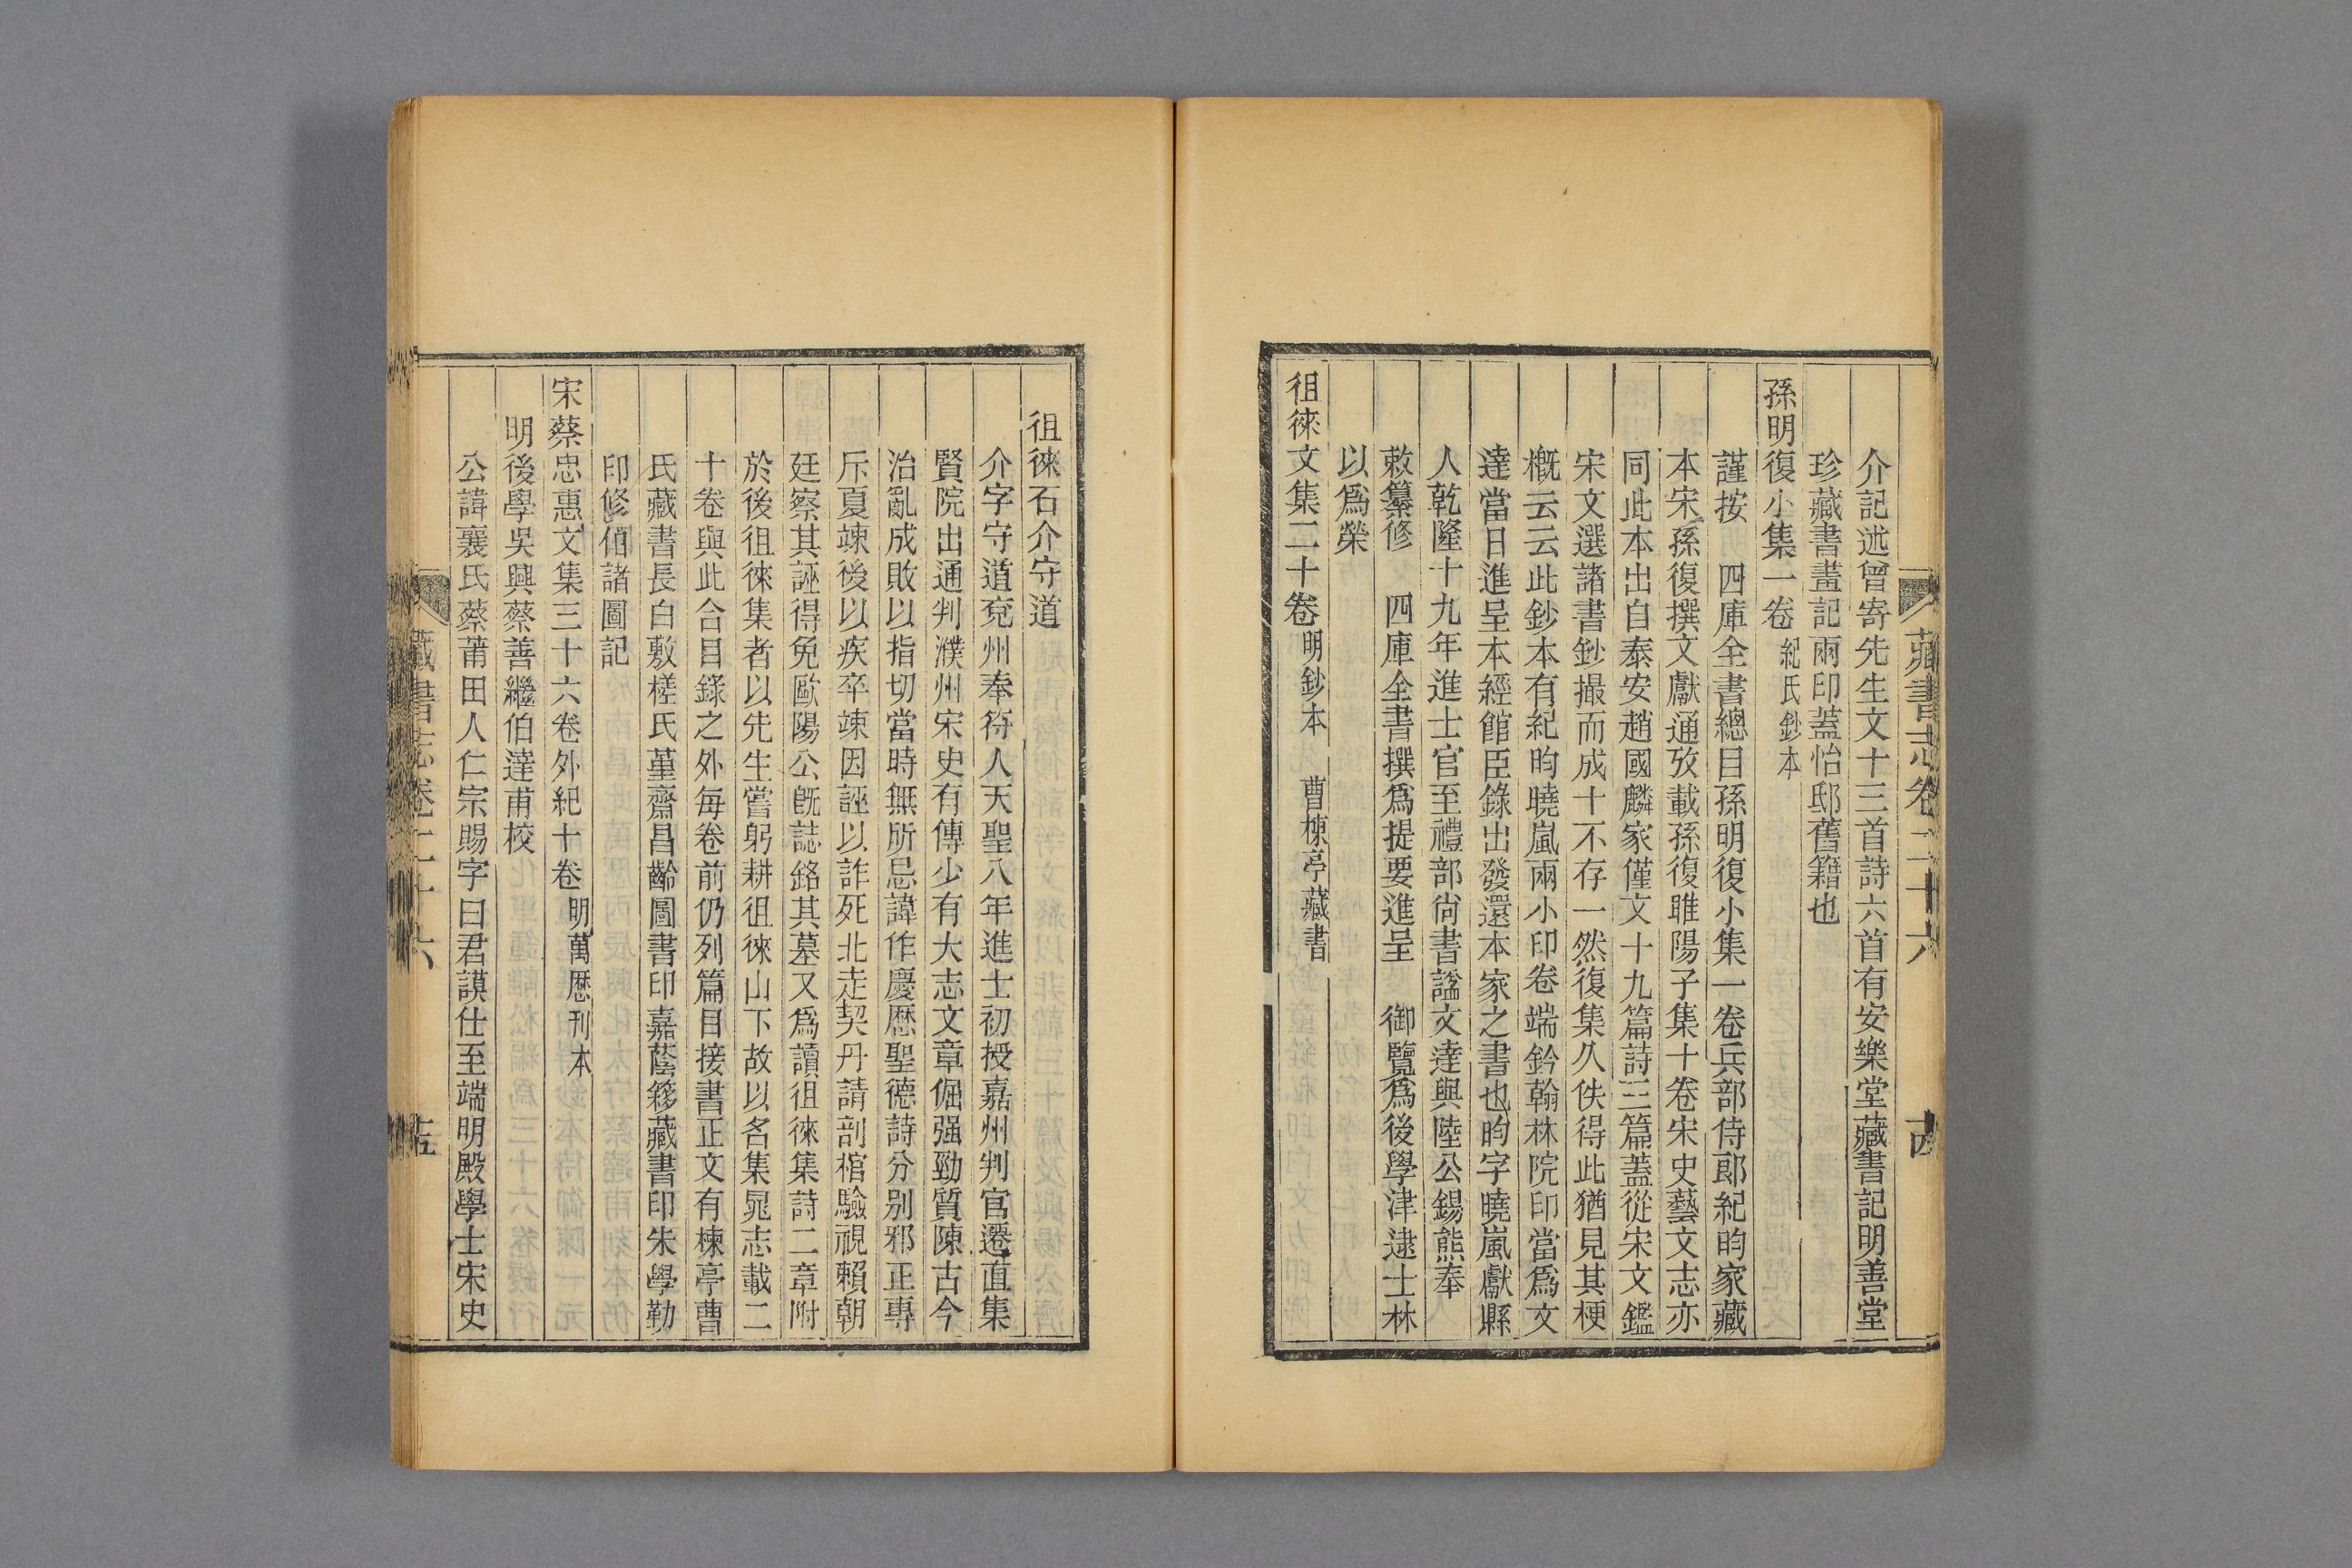 藏書志卷二十六
介記述曾寄先生文十三首詩六首有安樂堂藏書記明善堂
珍藏書畫記兩印蓋怡邸舊籍也
孫明復小集一卷 紀氏鈔本
謹按 四庫全書總目孫明復小集一卷兵部侍郎紀昀家藏
本宋孫復撰文獻通攷載孫復睢陽子集十卷宋史藝文志亦
同此本出自泰安趙國麟家僅文十九篇詩三篇蓋從宋文鑑
宋文選諸書鈔撮而成十不存一然復集久佚得此猶見其梗
槪云云此鈔本有紀昀曉嵐兩小印卷端鈐翰林院印當爲文
達當日進呈本經館臣錄出發還本家之書也昀字曉嵐獻縣
人乾隆十九年進士官至禮部尙書諡文達與陸公錫熊奉
敕纂修 四庫全書撰爲提要進呈 御覽爲後學津逮士林
以爲榮
徂徠文集二十卷 明鈔本 曹楝亭藏書
徂徠石介守道
介字守道兗州奉符人天聖八年進士初授嘉州判官遷直集
賢院出通判濮州宋史有傳少有大志文章倔强勁質陳古今
治亂成敗以指切當時無所忌諱作慶厯聖德詩分別邪正專
斥夏竦後以疾卒竦因誣以詐死北走契丹請剖棺驗視賴朝
廷察其誣得免歐陽公旣誌銘其墓又爲讀徂徠集詩二章附
於後徂徠集者以先生嘗躬耕徂徠山下故以名集晁志載二
十卷與此合目錄之外每卷前仍列篇目接書正文有楝亭曹
氏藏書長白敷槎氏堇齋昌齡圖書印嘉蔭簃藏書印朱學勤
印修伯諸圖記
宋蔡忠惠文集三十六卷外紀十卷 明萬厯刊本
明後學吳興蔡善繼伯達甫校
公諱襄氏蔡莆田人仁宗賜字曰君謨仕至端明殿學士宋史
藏書志卷二十六